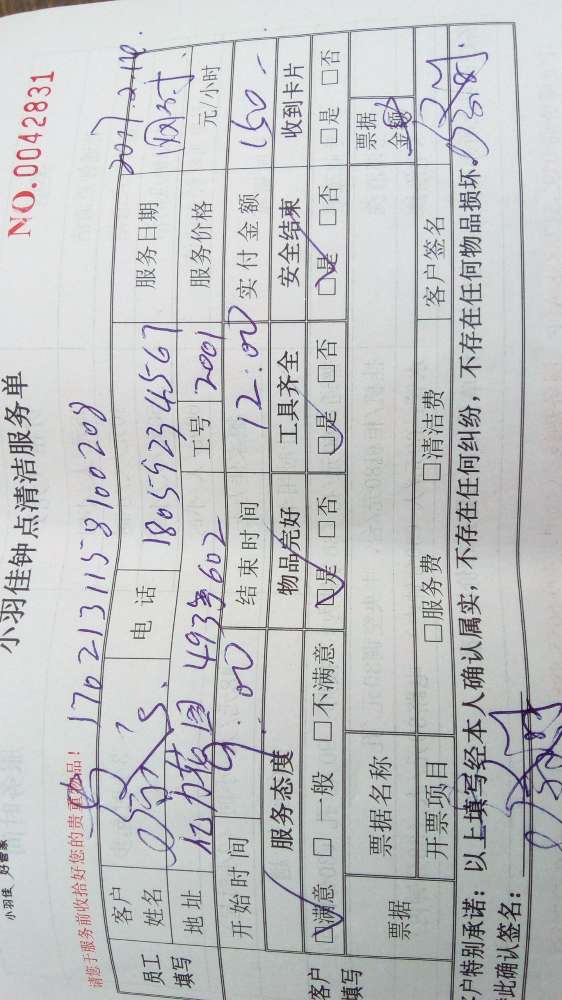 小羽佳 好管家
小羽佳钟点清洁服务单
NO.0042831
请您于服务前收拾好您的贵重物品！
1702131158100208
员工填写
客户姓名
电话 18059234567
服务日期 2017.2.14.
地址
工号 2001
服务价格 元/小时
开始时间 9:00
结束时间 12:00
实付金额 150-
客户填写
服务态度 物品完好 工具齐全 安全结束 收到卡片
□满意 □一般 □不满意 □是 □否 □是 □否 □是 □否 □是 □否
票据
票据名称
票据金额
开票项目 □服务费 □清洁费
客户签名
客户特别承诺：以上填写经本人确认属实，不存在任何纠纷，不存在任何物品损坏。
此确认签名：